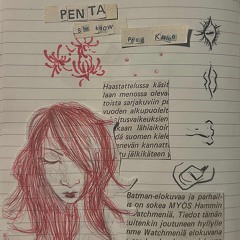 PENTA
Haastattelussa käsit
laan menossa oleva
toista sarjakuviin p
vuoden alkupuolelt
situsvaikeuksien
kaan lähiaikoin
dä suomen kiele
nevän kannatt
tu jälkikäteen
Batman-elokuvaa ja parhail
s on sokea MYÖS Hammin
Watchmeniä. Tiedot tämän
uitenkin joutuneen hyllylle
nme Watchmeniä elokuvana